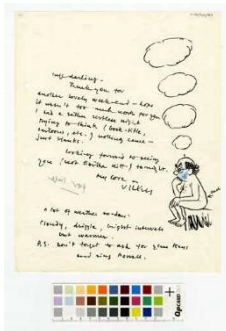 darling -
Thank you for
another lovely week-end - hope
it wasn't too much work for you
I had a rather restless night
trying to think (book-title,
cartoons, etc.) nothing came -
just blanks.
Looking forward to seeing
you
My love -
Vicky
A lot of weather to-day:
Cloudy, drizzle, bright intervals
but warmer.
P.S. Don't forget to ask for your keys
and ring